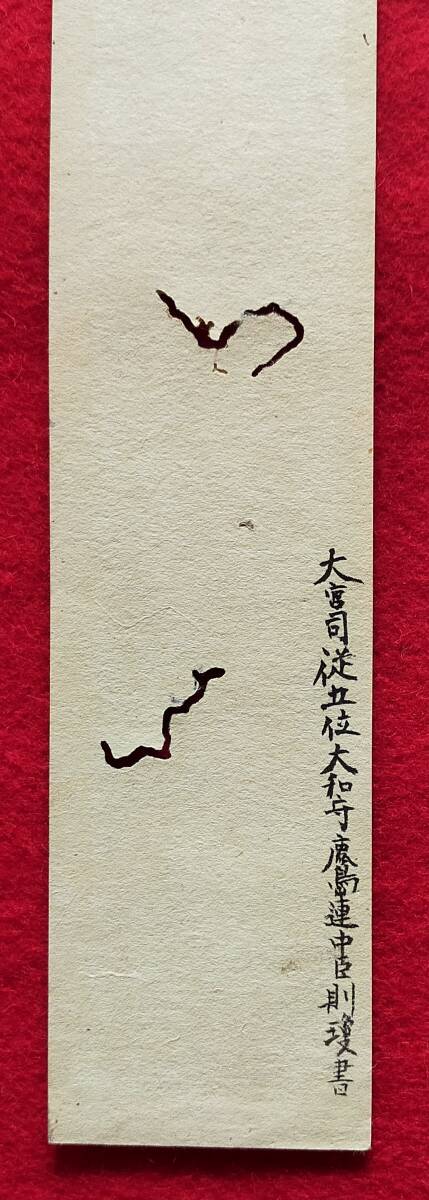 大宮司従五位大和守鹿島連中臣則瓊書